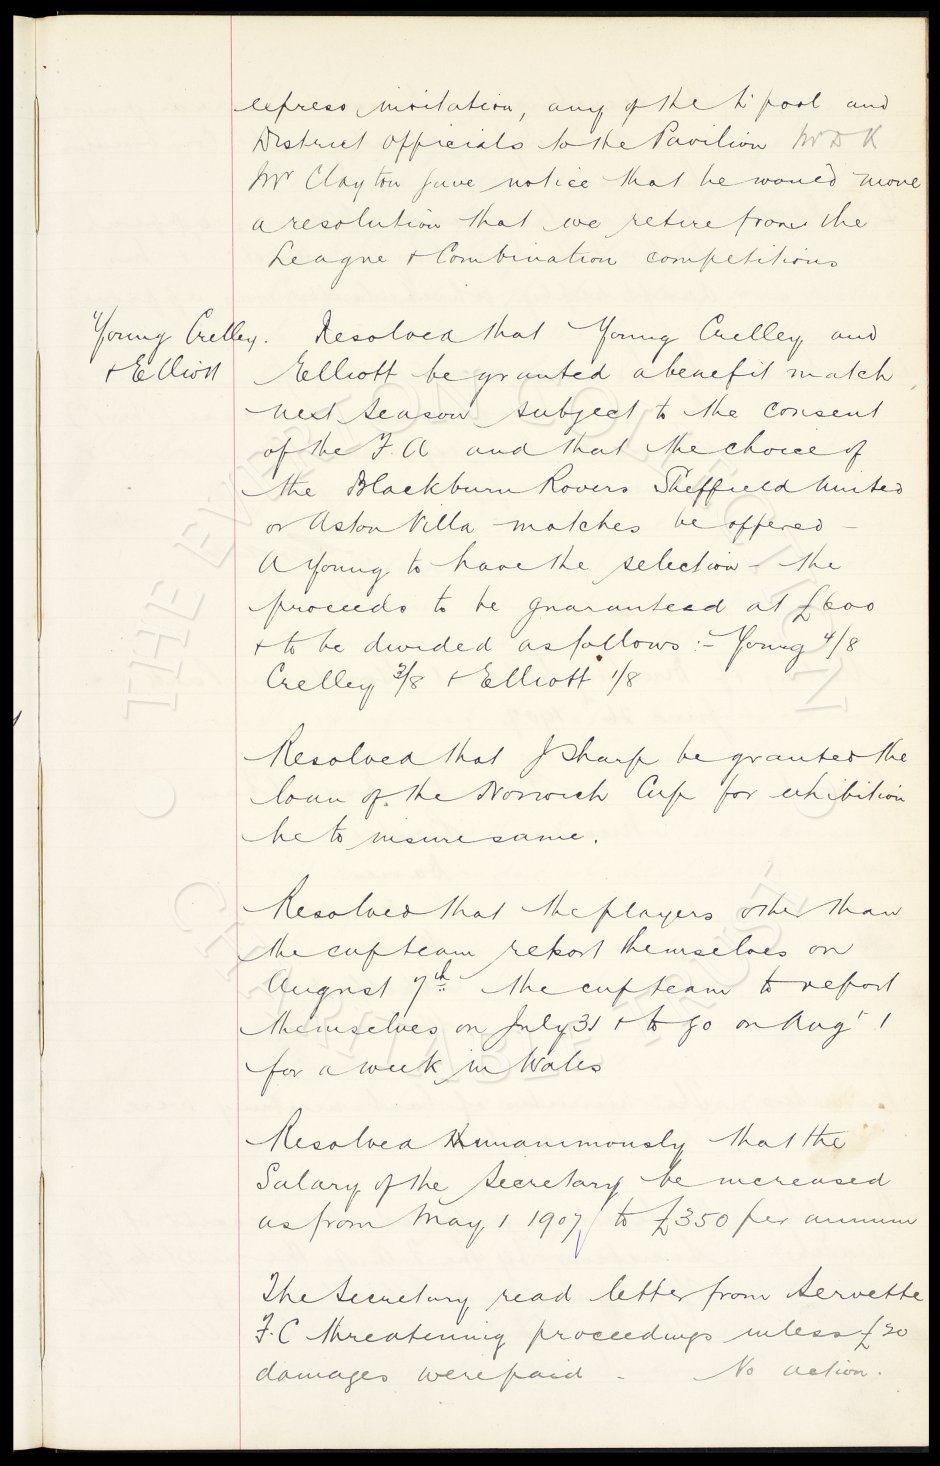 express invitation, any of the L'pool and
District Officials to the Pavilion
Mr Clayton gave notice that he would move
a resolution that we retire from the
League & Combination competitions
Young Crelley.
& Elliott
Resolved that Young Crelley and
Elliott be granted a benefit match
next season subject to the consent
of the F.A and that the choice of
the Blackburn Rovers Sheffield United
or Aston Villa matches be offered -
A Young to have the selection - the
proceeds to be guaranteed at £600
& to be divided as follows :- Young 4/8
Crelley 3/8 & Elliott 1/8
Resolved that J Sharp be granted the
loan of the Norwich Cup for exhibition
he to insure same.
Resolved that the players other than
the cup team report themselves on
August 7th the cup team to report
themselves on July 31 & to go on Augt 1
for a week in Wales
Resolved unanimously that the
Salary of the Secretary be increased
as from May 1 1907 to £350 per annum
The Secretary read letter from Servette
F.C threatening proceedings unless £20
damages were paid - No action.
© THE EVERTON COLLECTION